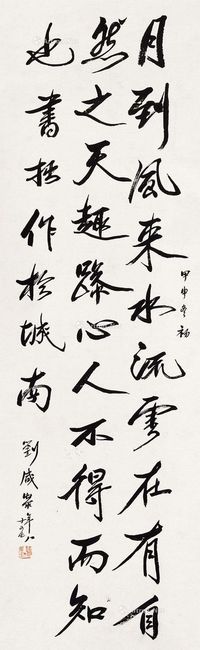 月到風來水流雲在有自
然之天趣躁心人不得而知
也書拙作於城南
甲申冬初
劉咸榮年八十